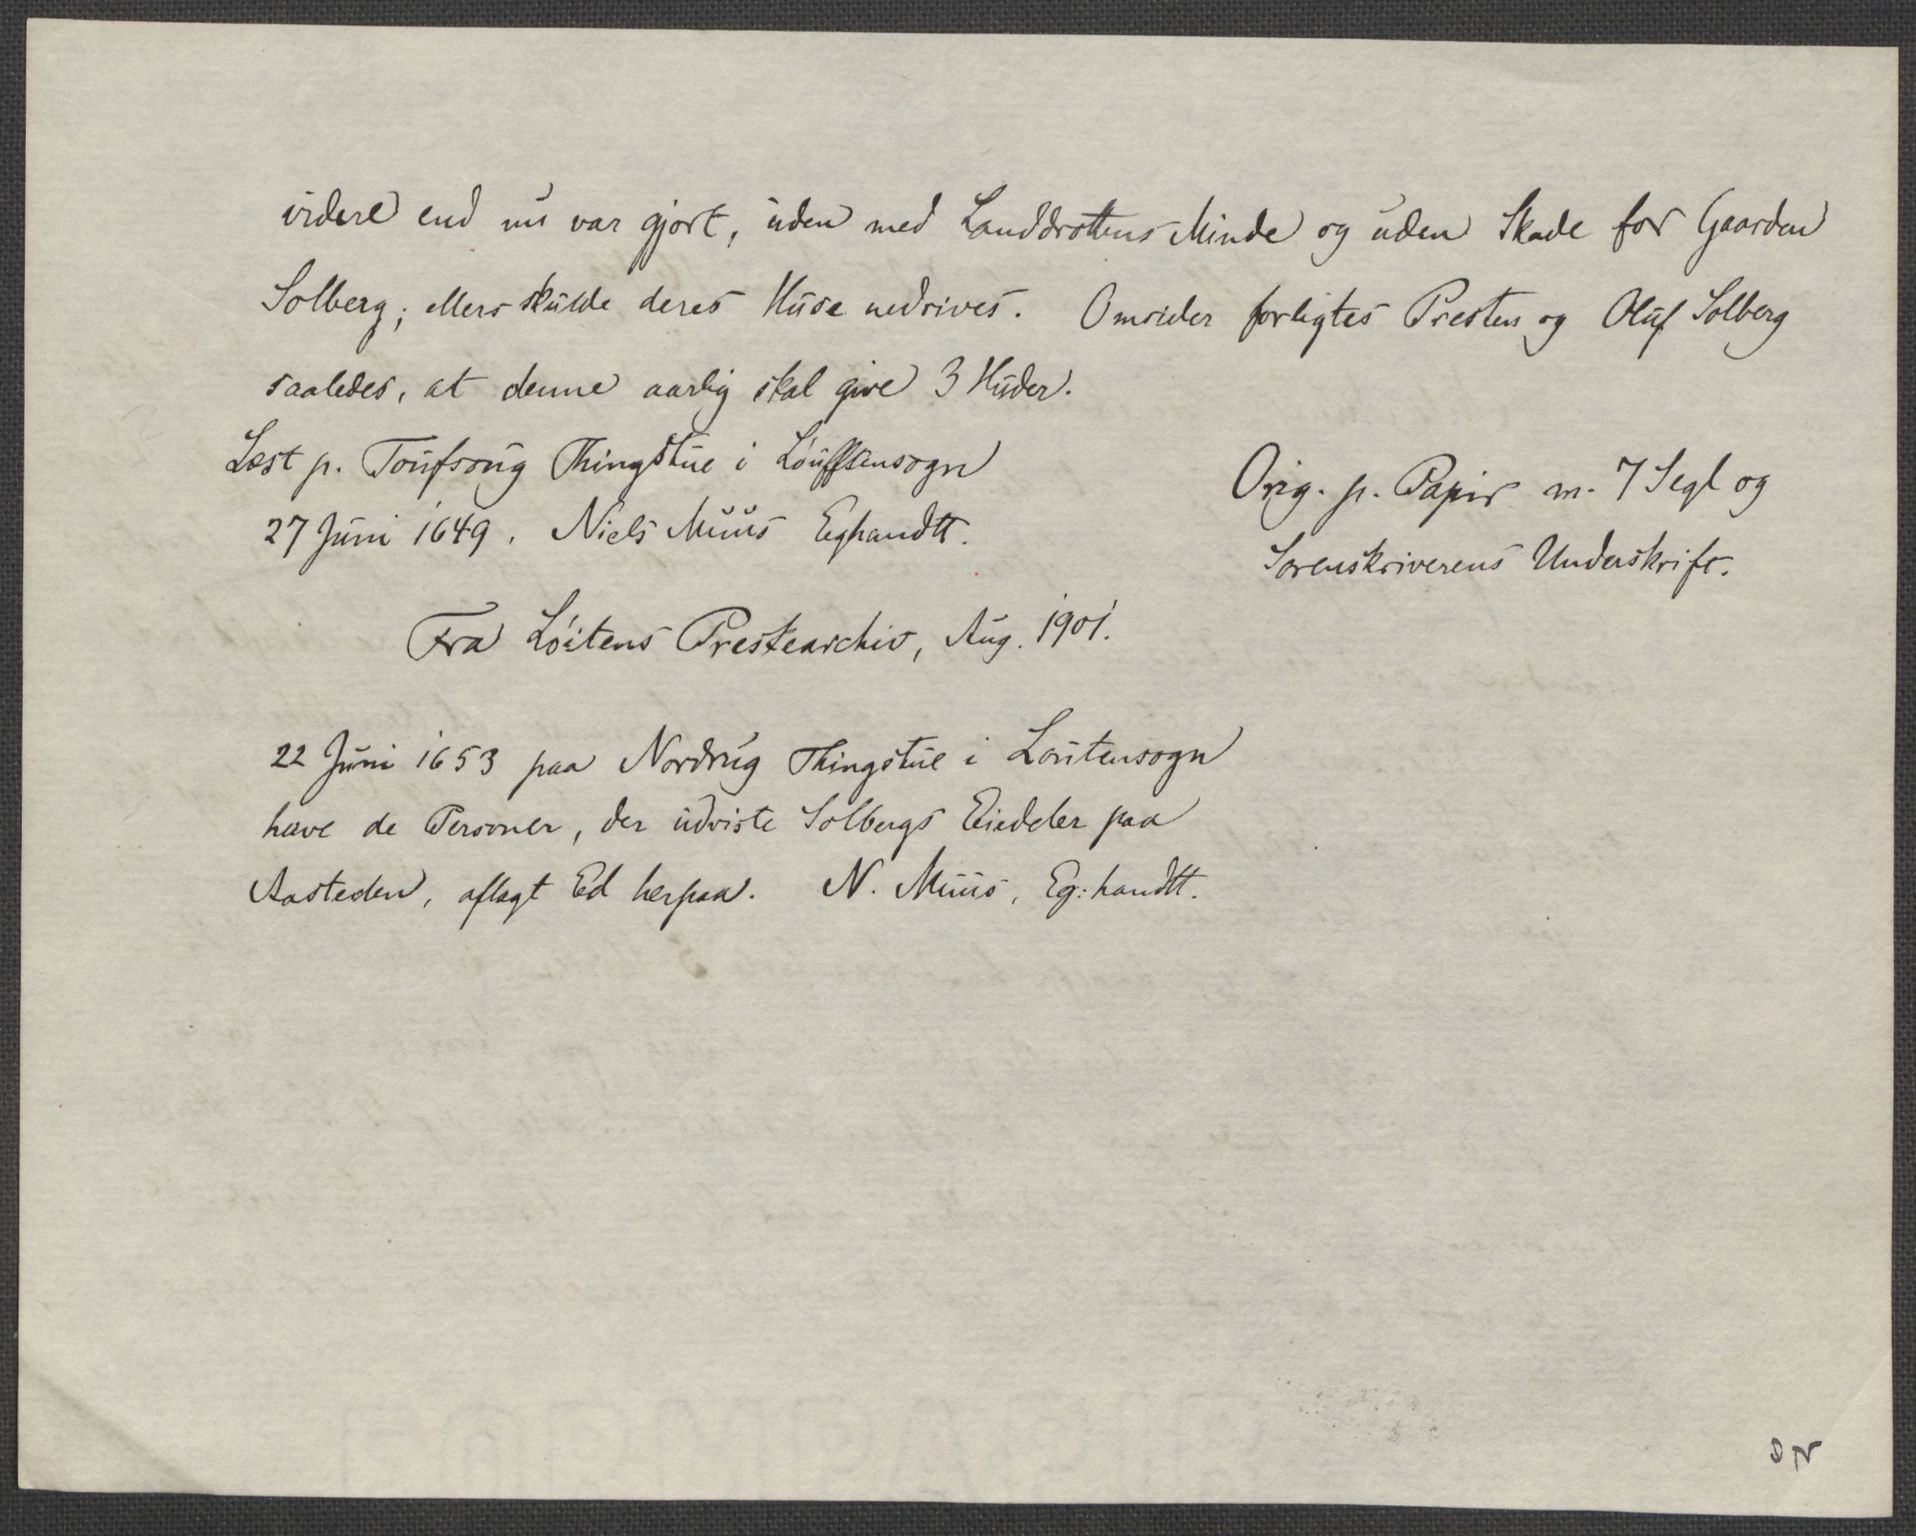 videre end nu var gjort, uden med Landdrottens Minde og uden Skade for Gaarden
Solberg; ellers skulde deres Huse nedrives. Omsider forligtes Presten og Oluf Solberg
saaledes, at denne aarlig skal give 3 Huder.
Læst p. Thingstue i
27 Juni 1649. Niels Muus Eghandtt.
Orig. p. Papir m. 7 Segl og
Sorenskriverens Underskrift.
Fra Löitens Prestearchiv, Aug. 1901.
22 Juni 1653 paa Nordrug Thingstue i Löutensogn
have de Personer, der udviste Solbergs Eiedeler paa
Aasteden, aflagt Ed herpaa. N. Muus, Eg: handtt.
DN